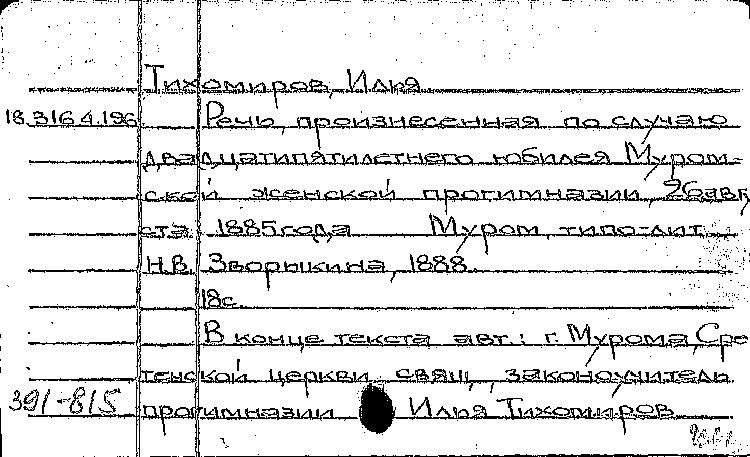 Тихомиров, Илья
18.316.4.196 Речь, произнесенная по случаю
двадцатипятилетнего юбилея Муром-
ской женской прогимназии, 26 авгу
ста 1885 года Муром, типо-лит.
Н.В. Зворыкина, 1888.
18с.
В конце текста авт.: г. Мурома, Сре
тенской церкви свящ., законоучитель
391-815 прогимназии Илья Тихомиров